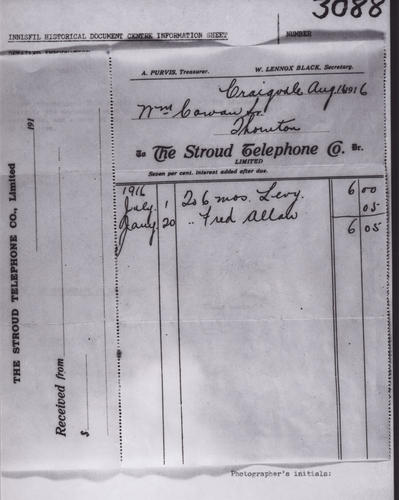 3088
INNISFIL HISTORICAL DOCUMENT CENTRE INFORMATION SHEET NUMBER
A. PURVIS, Treasurer. W. LENNOX BLACK, Secretary.
Craigvale Aug 1916
Wm Cowan Sr.
Thornton
To The Stroud Telephone Co. Dr.
LIMITED
Seven per cent. interest added after due.
1916
July 1 To 6 mos. Levy. 6 00
Jany. 20 " Fred Allan 05
6 05
THE STROUD TELEPHONE CO., Limited
191
Received from
$
Photographer's initials: